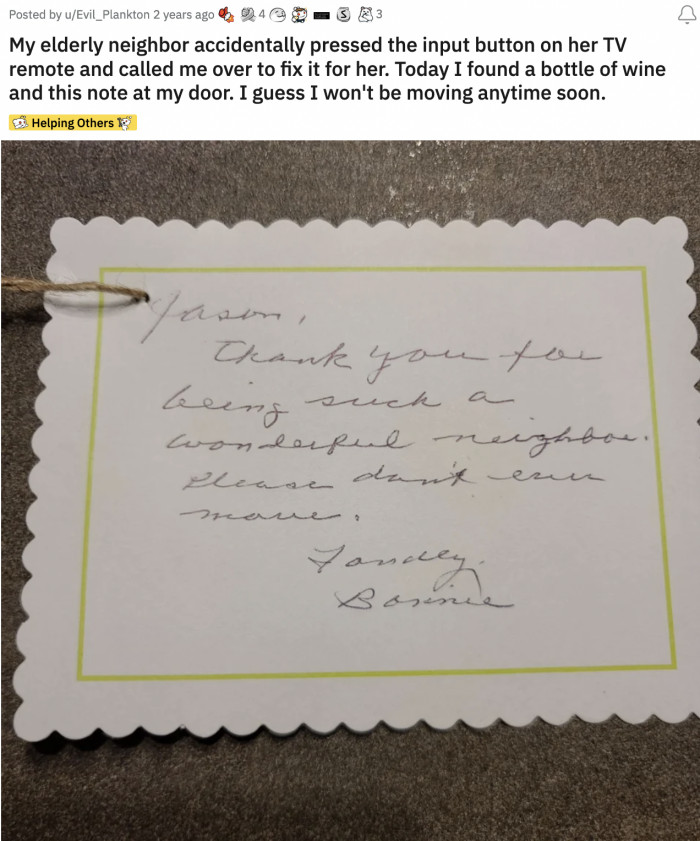 Posted by u/Evil_Plankton 2 years ago 4 S 3
My elderly neighbor accidentally pressed the input button on her TV
remote and called me over to fix it for her. Today I found a bottle of wine
and this note at my door. I guess I won't be moving anytime soon.
Helping Others
Jason,
Thank you for
being such a
wonderful neighbor.
Please don't ever
move.
Fondly,
Bonnie